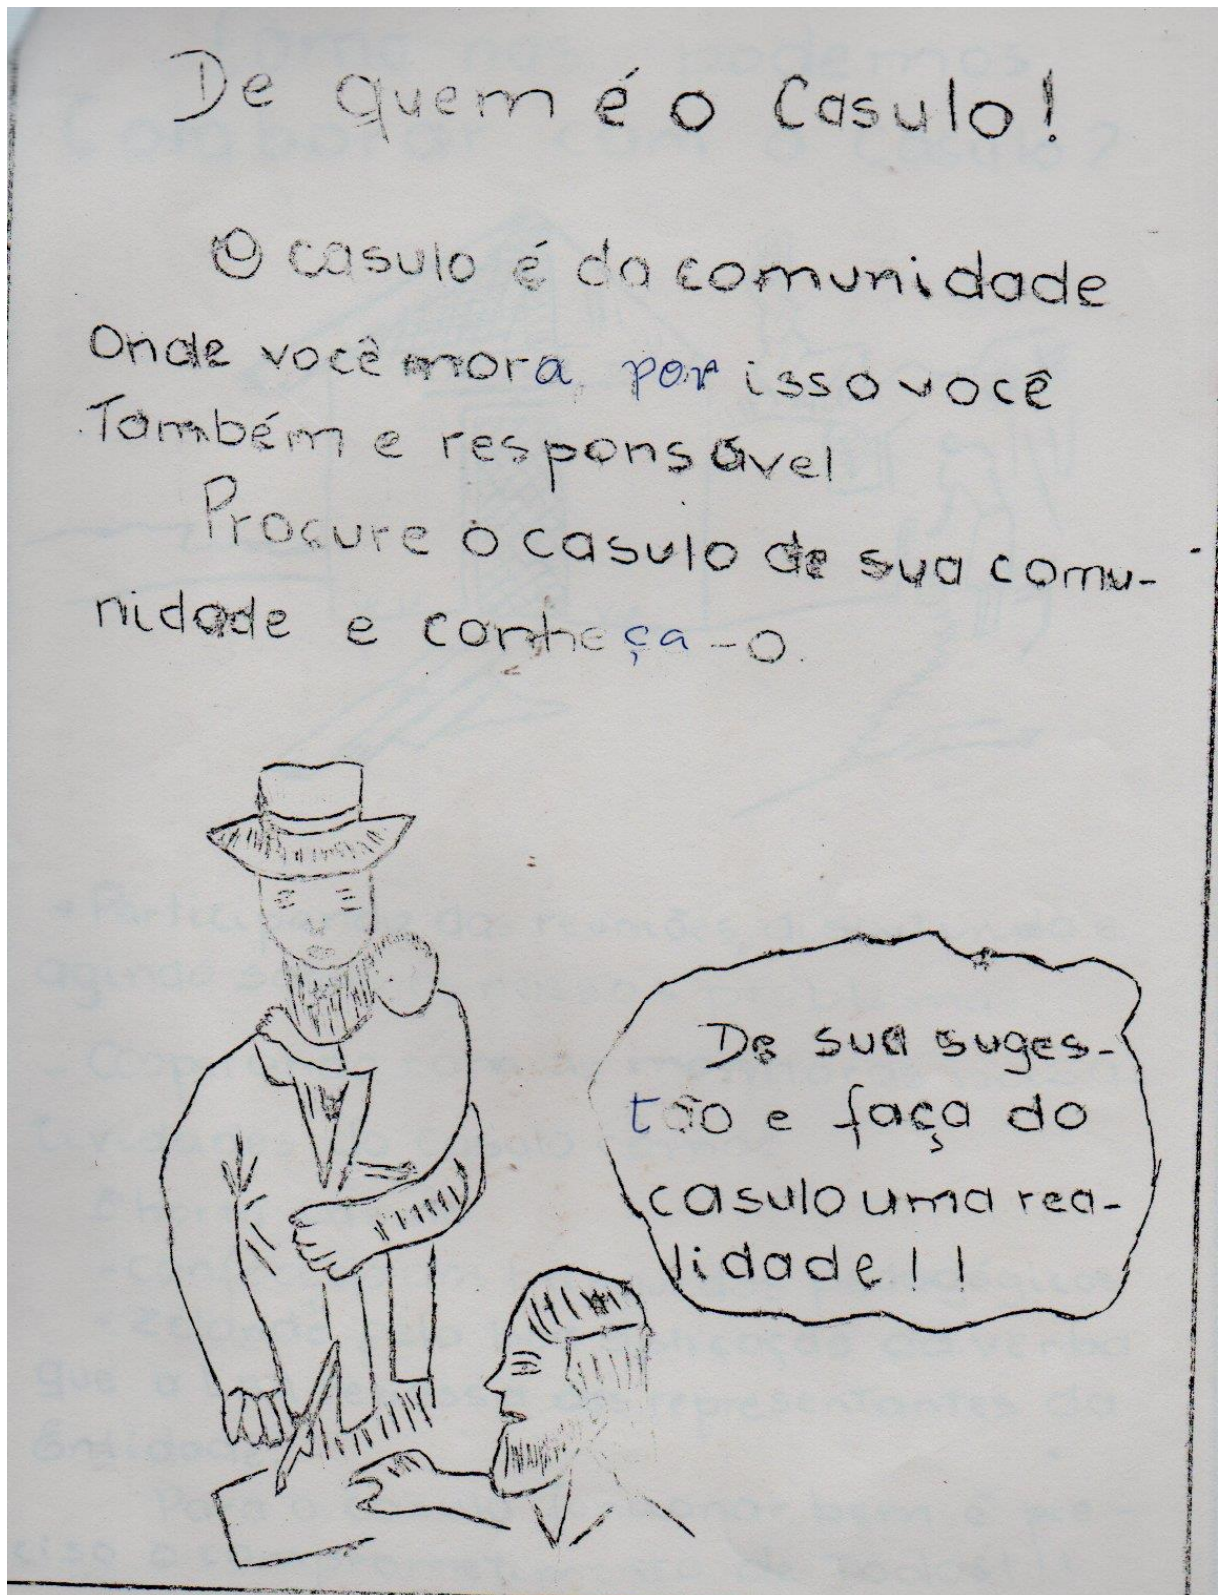 De quem é o Casulo!
O casulo é da comunidade
Onde você mora, por isso você
Também e responsável
Procure o casulo de sua comu-
nidade e conheça-o.
De sua suges-
tão e faça do
casulo uma rea-
lidade!!